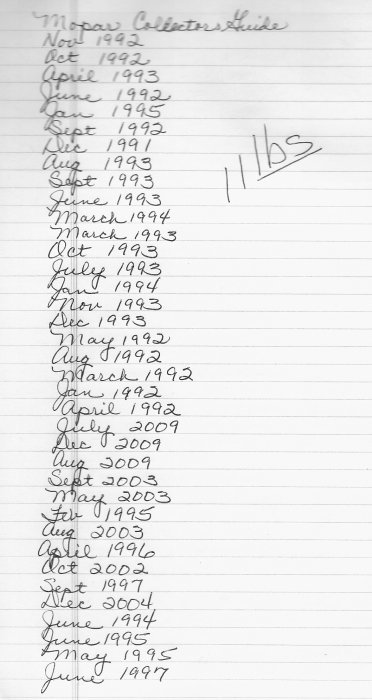 Mopar Collectors Guide
Nov 1992
Oct 1992
April 1993
June 1992
Jan 1995
Sept 1992
Dec 1991
Aug 1993
Sept 1993
June 1993
March 1994
March 1993
Oct 1993
July 1993
Jan 1994
Nov 1993
Dec 1993
May 1992
Aug 1992
March 1992
Jan 1992
April 1992
July 2009
Dec 2009
Aug 2009
Sept 2003
May 2003
Feb 1995
Aug 2003
April 1996
Oct 2002
Sept 1997
Dec 2004
June 1994
June 1995
May 1995
June 1997
11 lbs